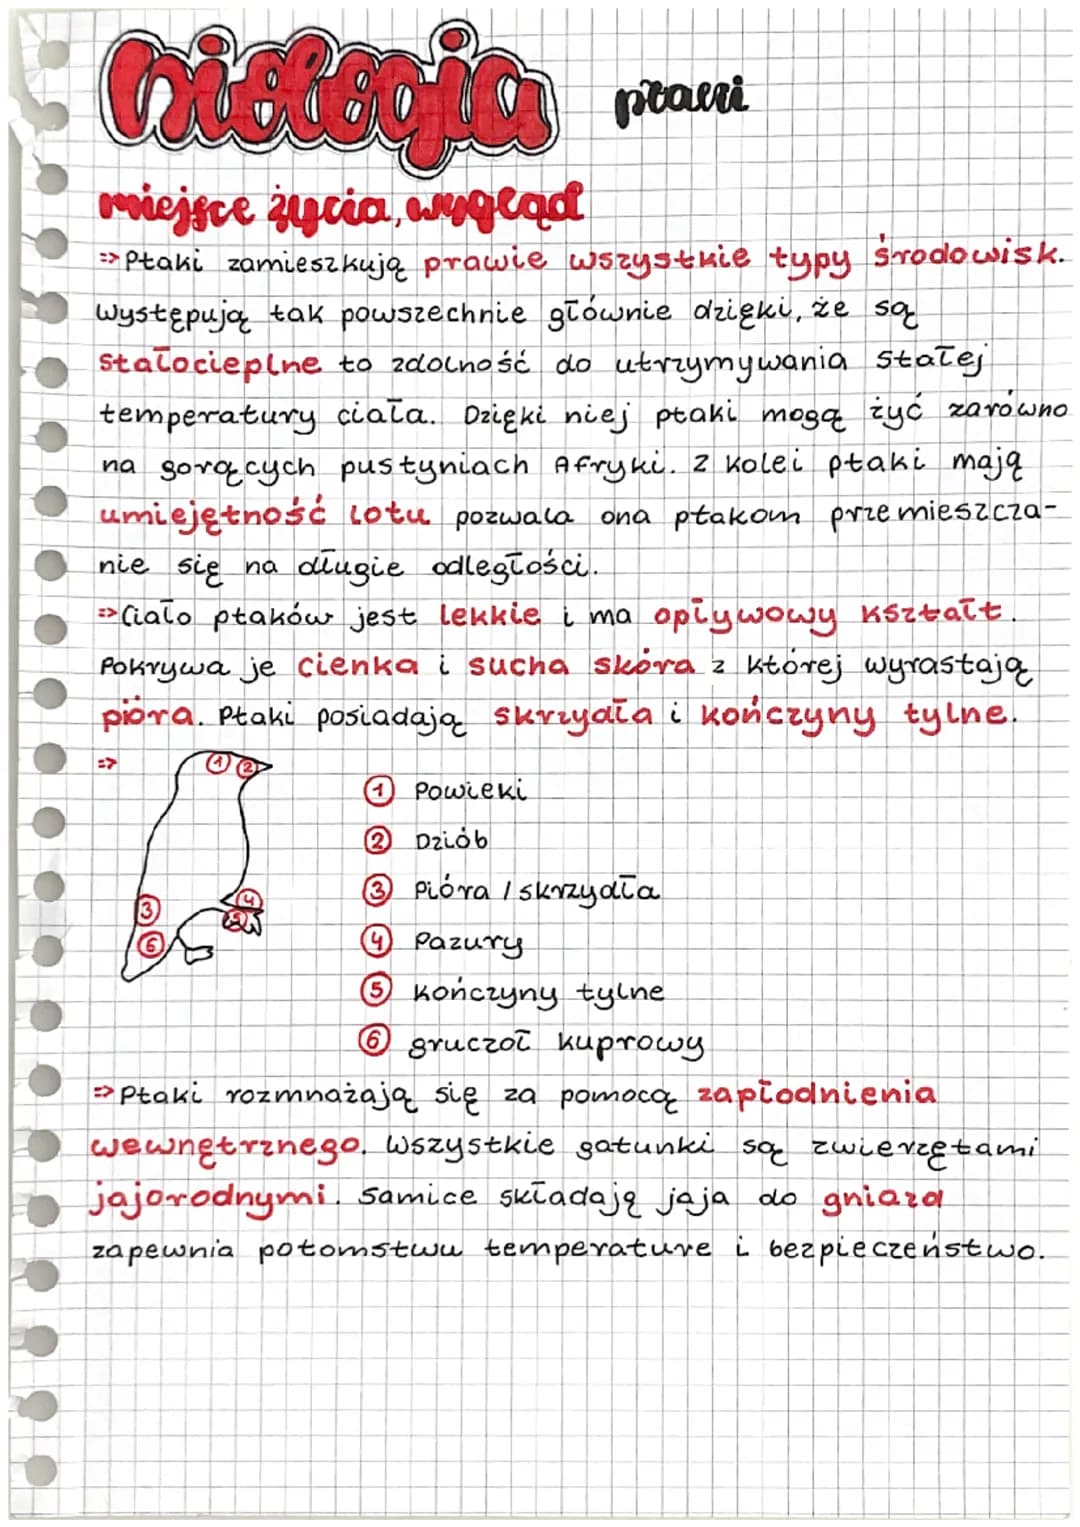 biologia ptaki
miejsce życia, wygląd
=> Ptaki zamieszkują prawie wszystkie typy środowisk.
Występują tak powszechnie głównie dzięki, że są
stałocieplne to zdolność do utrzymywania stałej
temperatury ciała. Dzięki niej ptaki mogą żyć zarówno
na gorących pustyniach Afryki. Z kolei ptaki mają
umiejętność lotu pozwala ona ptakom przemieszcza-
nie się na długie odległości.
=> Ciało ptaków jest lekkie i ma opływowy kształt.
Pokrywa je cienka i sucha skóra z której wyrastają
pióra. Ptaki posiadają skrzydła i kończyny tylne.
=>
1 2
3
6
4
5
1 Powieki
2 Dziób
3 Pióra / skrzydła
4 Pazury
5 kończyny tylne
6 gruczoł kuprowy
=> Ptaki rozmnażają się za pomocą zapłodnienia
wewnętrznego. Wszystkie gatunki są zwierzętami
jajorodnymi. Samice składają jaja do gniazd
zapewnia potomstwu temperature i bezpieczeństwo.